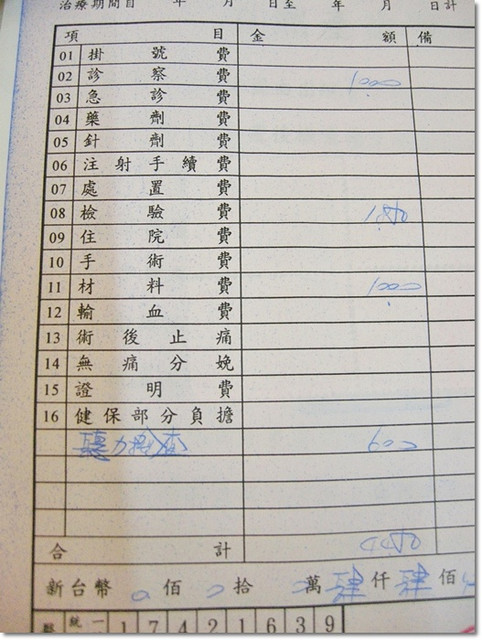 治療期間自 年 月 日至 年 月 日計
項 目 金 額 備
01 掛號費
02 診察費 1000
03 急診費
04 藥劑費
05 針劑費
06 注射手續費
07 處置費
08 檢驗費 1850
09 住院費
10 手術費
11 材料費 1000
12 輸血費
13 術後止痛
14 無痛分娩
15 證明費
16 健保部分負擔
聽力檢查 600
合計 4450
新台幣 0 佰 0 拾 0 萬 肆 仟 肆 佰
統一 1 7 4 2 1 6 3 9